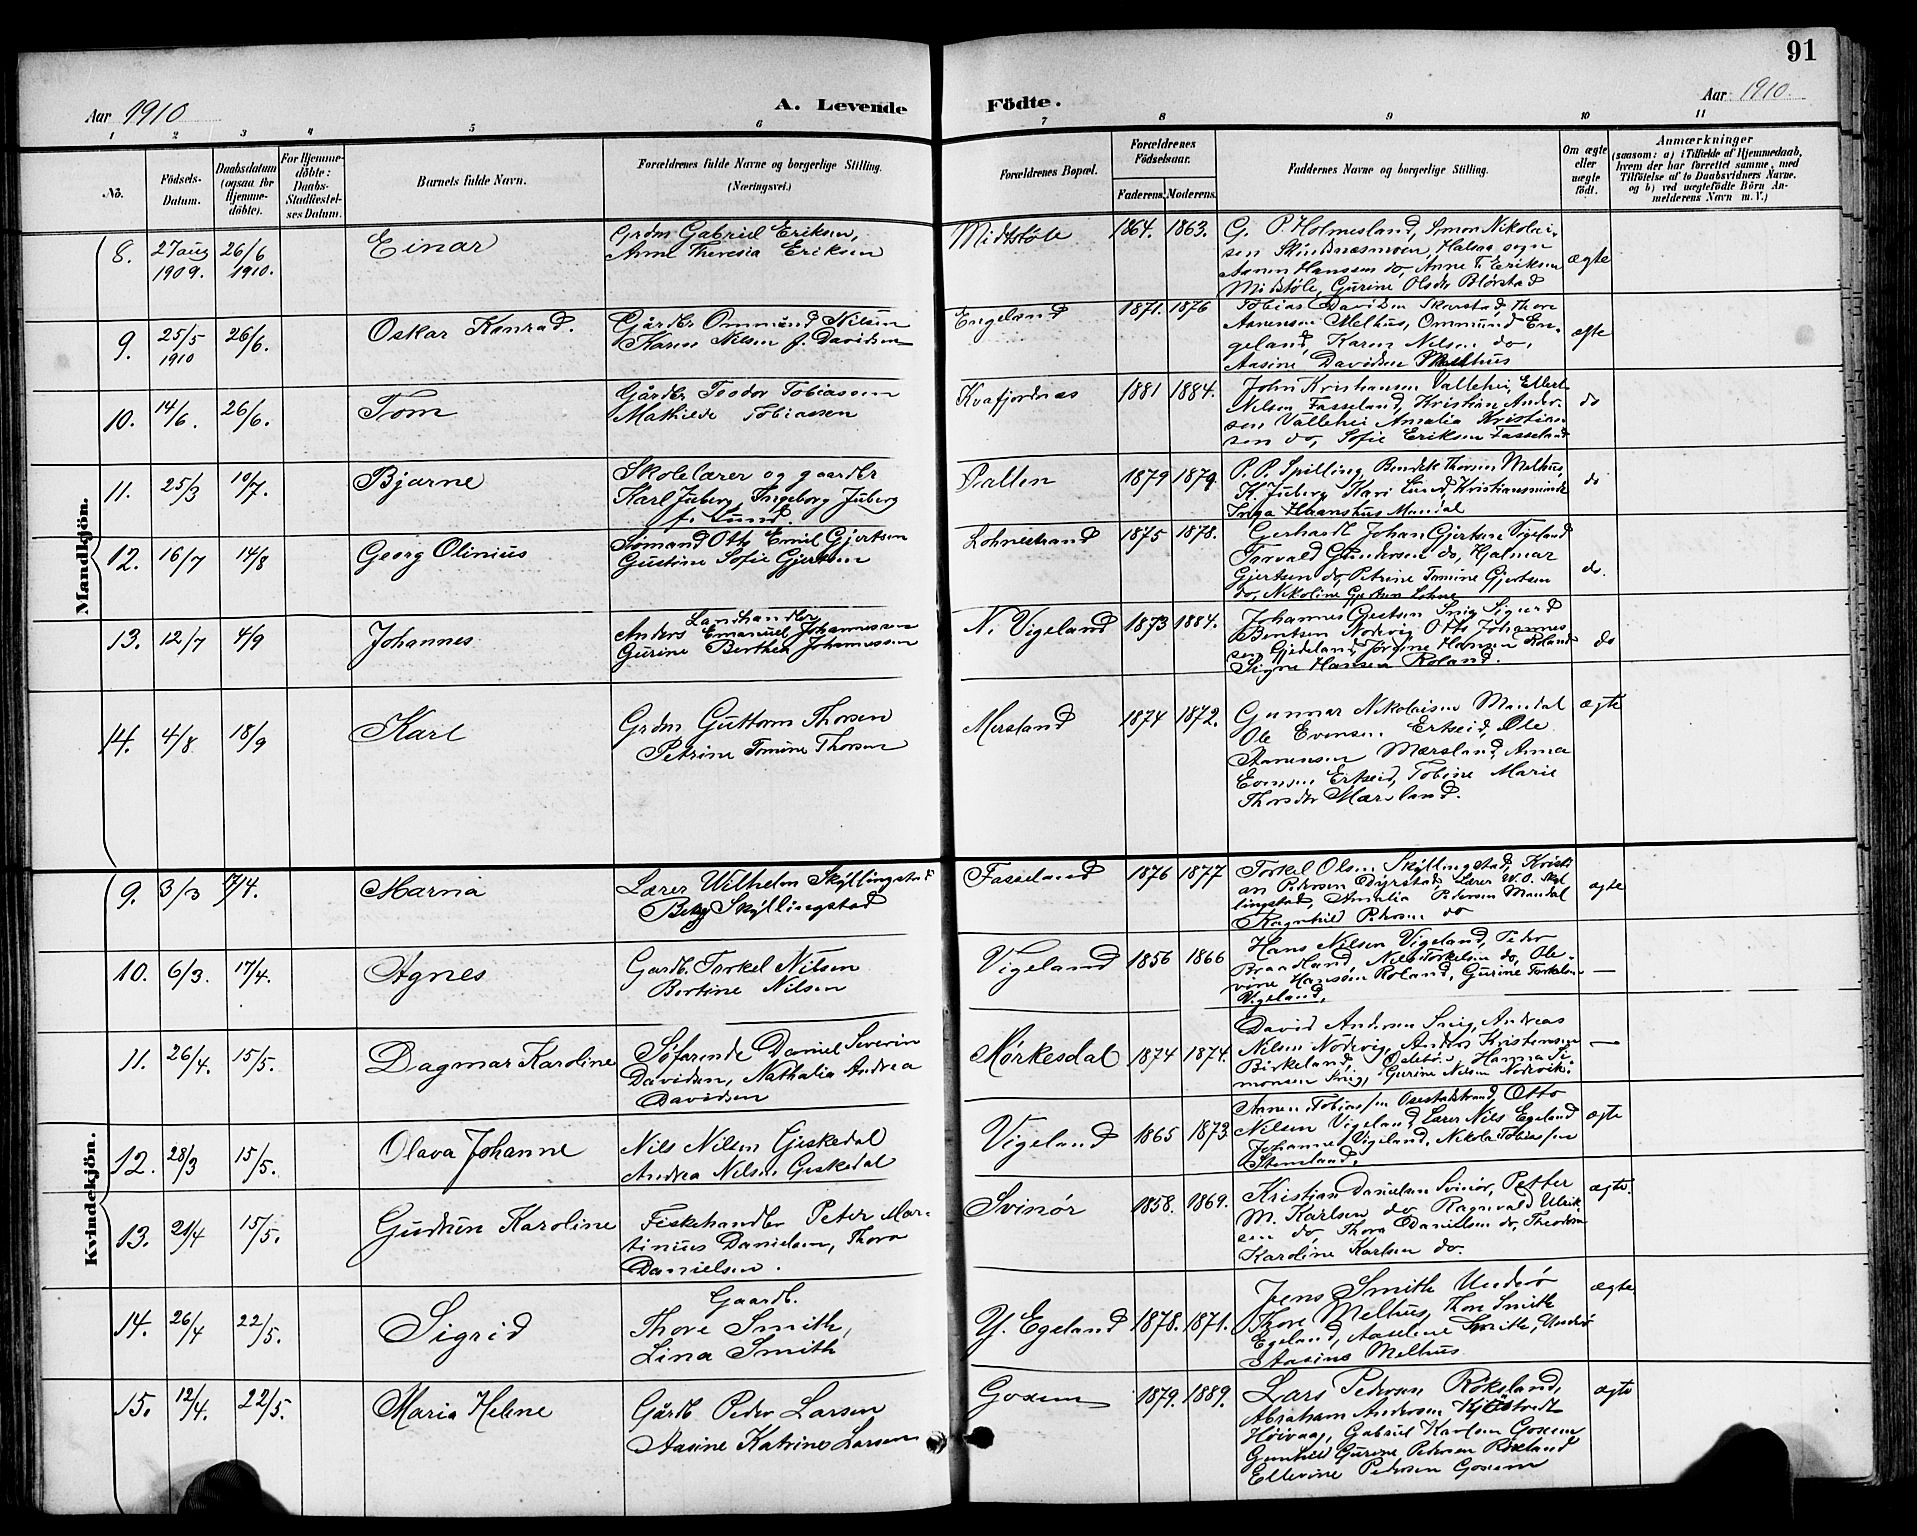 91
Aar 1910 A. Levende Födte. Aar 1910.
1 2 3 4 5 6 7 8 9 10 11
No. Födsels-Datum. Daabsdatum (ogsaa for Hjemmedöbte). For Hjemmedöbte: Daabs-Stadfæstelses Datum. Barnets fulde Navn. Forældrenes fulde Navne og borgerlige Stilling. (Næringsvei.) Forældrenes Bopæl. Forældrenes Födselsaar. Faderens. Moderens. Faddernes Navne og borgerlige Stilling. Om ægte eller uægte födt. Anmærkninger (saasom: a) i Tilfælde af Hjemmedaab, hvem der har forrettet samme, med Tilföielse af to Daabsvidners Navne, og b) ved uægtefödte Börn Anmelderens Navn m. V.)
Mandkjön.
8. 27 aug 1909. 26/6 1910. Einar
Grdm Gabriel Eriksen,
Anne Theresia Eriksen
Midtböle 1864. 1863.
G. P. Holmesland, Simon Nikolai-
sen Skindnæsmoen, Halsaa sogn
Hanssen do, Anne T. Eriksen
Midtböle, Gurine Olsdr
ægte
9. 25/5 1910 26/6. Oskar Konrad.
Gårdbr Ommund Nilsen
Karen Nilsen f. Davidsen
Engeland 1871. 1876
Tobias Davidsen Skarstad, Thore
Aanensen Melhus, Ommund En-
geland, Karen Nilsen do,
Aasine Davidsen Melhus
ægte
10. 14/6. 26/6. Tom
Gårdbr Teodor Tobiassen
Mathilde Tobiassen
Kvafjordnæs 1881 1884.
John Kristiansen Vallehei, Ellert
Nilsen Fasseland, Kristian Ander-
sen Vallehei Amalia Kristian
sen do, Sofie Eriksen Fasseland
do
11. 25/3 10/7. Bjarne
Skolelærer og gaardbr
Karl Juberg, Ingeborg Juberg
f. Lund.
1879 1879
P. P. Spilling, Bendik Thorsen Melhus,
K. Juberg, Kari Lund, Kristiansminde
Inga Haanshus Mandal
do
12. 16/7 14/8 Georg Olinius
Sömand Otto Emil Gjertsen
Gustine Sofie Gjertsen
Lohnestrand 1875 1878.
Gerhardt Johan Gjertsen Vigeland
Torvald Gundersen do, Hjalmar
Gjertsen do, Petrine Tomine Gjertsen
do, Nikoline Gjertsen Lohne
do.
13. 12/7 4/9 Johannes
Landhandler
Anders Emanuel Johannessen
Gurine Berthea Johannessen
N. Vigeland 1873 1884.
Johannes Gjertsen Snig Sigurd
Berntsen Nodevig Otto Johannes
sen Gjideland, Jörgine Hansen Roland
Signe Hansen Roland.
do
14. 4/8 18/9 Karl
Grdm Guttorm Thorsen
Petrine Tomine Thorsen
Mersland 1874 1872.
Gunnar Nikolaisen Mandal
Ole Evensen Ertseid, Ole
Aanensen Mærsland, Anna
Evensen Ertseid, Tobine Marie
Thorsdtr Mærsland.
ægte
Kvindekjön.
9. 3/3 7/4. Marna
Lærer Wilhelm Skyllingstad
Betzy Skyllingstad
Fasseland 1876 1877
Torkel Olsen Skyllingstad, Kristi
an Pedersen Dyrstad, Lærer W. O. Skyl
lingstad, Amalia Pedersen Mandal
Ragnhild Pedersen do
ægte
10. 6/3. 17/4. Agnes
Gardb. Torkel Nilsen
Bertine Nilsen
Vigeland 1856 1866
Hans Nilsen Vigeland, Peder
Braadland, Nils Torkelsen do, Ole-
vine Hansen Roland, Gurine Torkelsen
Vigeland.
—
11. 26/4. 15/5. Dagmar Karoline
Söfarende Daniel Severin
Davidsen, Nathalia Andrea
Davidsen
Mörkesdal 1874 1874.
David Andersen Snig, Andreas
Nilsen Nodevig, Anders Kristensen
Birkeland, Hanna Si
monsen Snig, Gurine Nilsen Nodevik.
—
12. 28/3 15/5. Olava Johanne
Nils Nilsen Geskedal
Andrea Nilsen Geskedal
Vigeland 1865 1873
Aanen Tobiassen Osestadstrand, Otto
Nilsen Vigeland, Lærer Nils Egeland
Johanne Vigeland, Nikolai Tobiassen
Stensland.
ægte
13. 21/4 15/5. Gudrun Karoline
Fiskehandler Peter Mar-
tinius Danielsen, Thora
Danielsen.
Svinör 1858. 1869.
Kristian Danielsen Svinör, Petter
M. Karlsen do Ragnvald Ulrik
sen do, Thora Danielsen do, Theodora
Karoline Karlsen do.
ægte.
14. 26/4 22/5. Sigrid
Gaardb.
Thore Smith,
Lina Smith
Y. Egeland 1878. 1871.
Jens Smith Underö
Thore Melhus, Thore Smith
Egeland, Aaselene Smith, Underö
Aasine Melhus
ægte
15. 12/4. 22/5. Maria Helene
Gårdb Peder Larsen
Aasine Katrine Larsen
Goxem 1879. 1889.
Lars Pedersen Röksland,
Abraham Andersen
Höivaag, Gabriel Karlsen Goxem
Gunhild Gurine Pedersen Röxland
Ellevine Pedersen Goxem
ægte